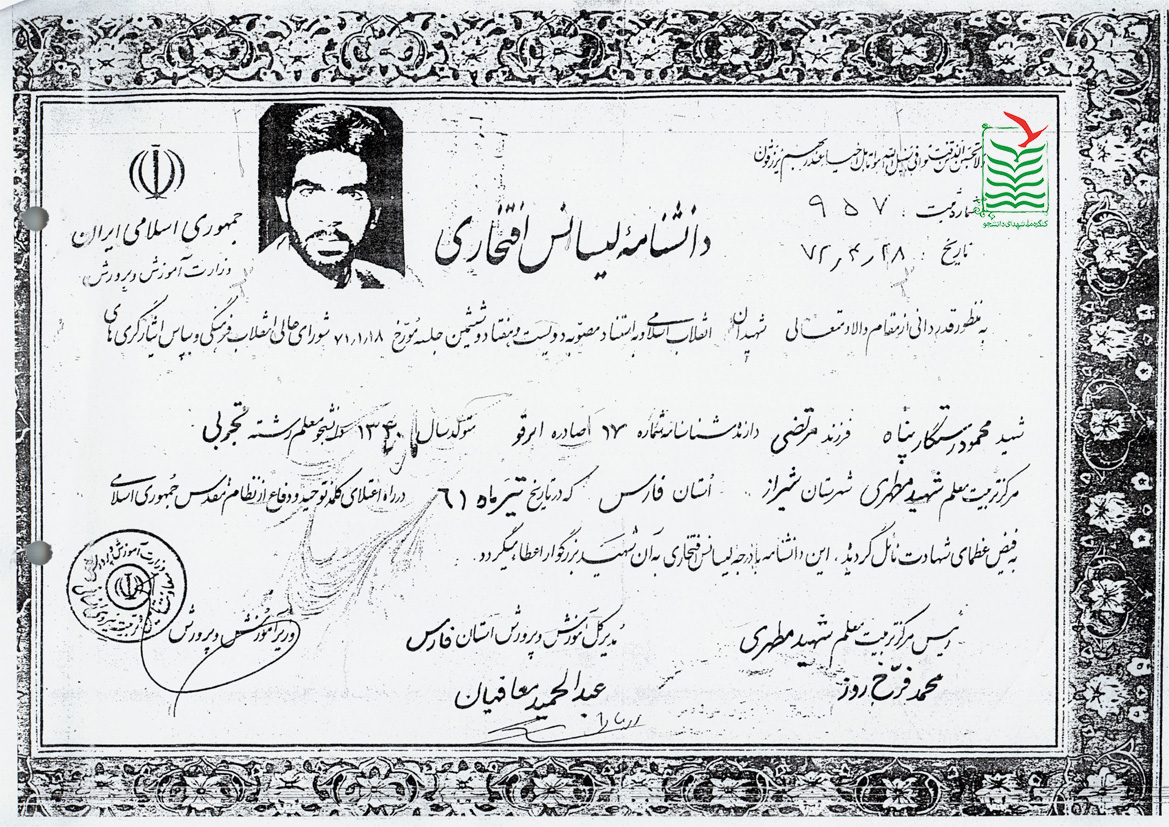 جمهوری اسلامی ایران
وزارت آموزش و پرورش
شماره ثبت : ۹۵۷
تاریخ : ۷۲٫۴٫۲۸
کنگره ملی شهدای دانشجو
دانشنامهٔ لیسانس افتخاری
به منظور قدردانی از مقام والا و متعالی شهیدان انقلاب اسلامی و به استناد مصوبه دویست و هفتاد و ششمین جلسه مورخ ۷۱٫۱٫۱۸ شورای عالی انقلاب فرهنگی و بپاس ایثارگری های
شهید محمود رستگار پناه فرزند مرتضی دارنده شناسنامه شماره ۱۷ صادره ابرقو متولد سال ۱۳۴۰ دانشجو معلم رشته تجربی
مرکز تربیت معلم شهید مطهری شهرستان شیراز استان فارس که در تاریخ تیر ماه ۶۱ در راه اعتلای کلمه توحید و دفاع از نظام مقدس جمهوری اسلامی
به فیض عظمای شهادت نائل گردیده، این دانشنامه با درجه لیسانس افتخاری به آن شهید بزرگوار اعطا میگردد.
رئیس مرکز تربیت معلم شهید مطهری
محمد فرخ روز
مدیر کل آموزش و پرورش استان فارس
عبدالحمید معافیان
وزیر آموزش و پرورش